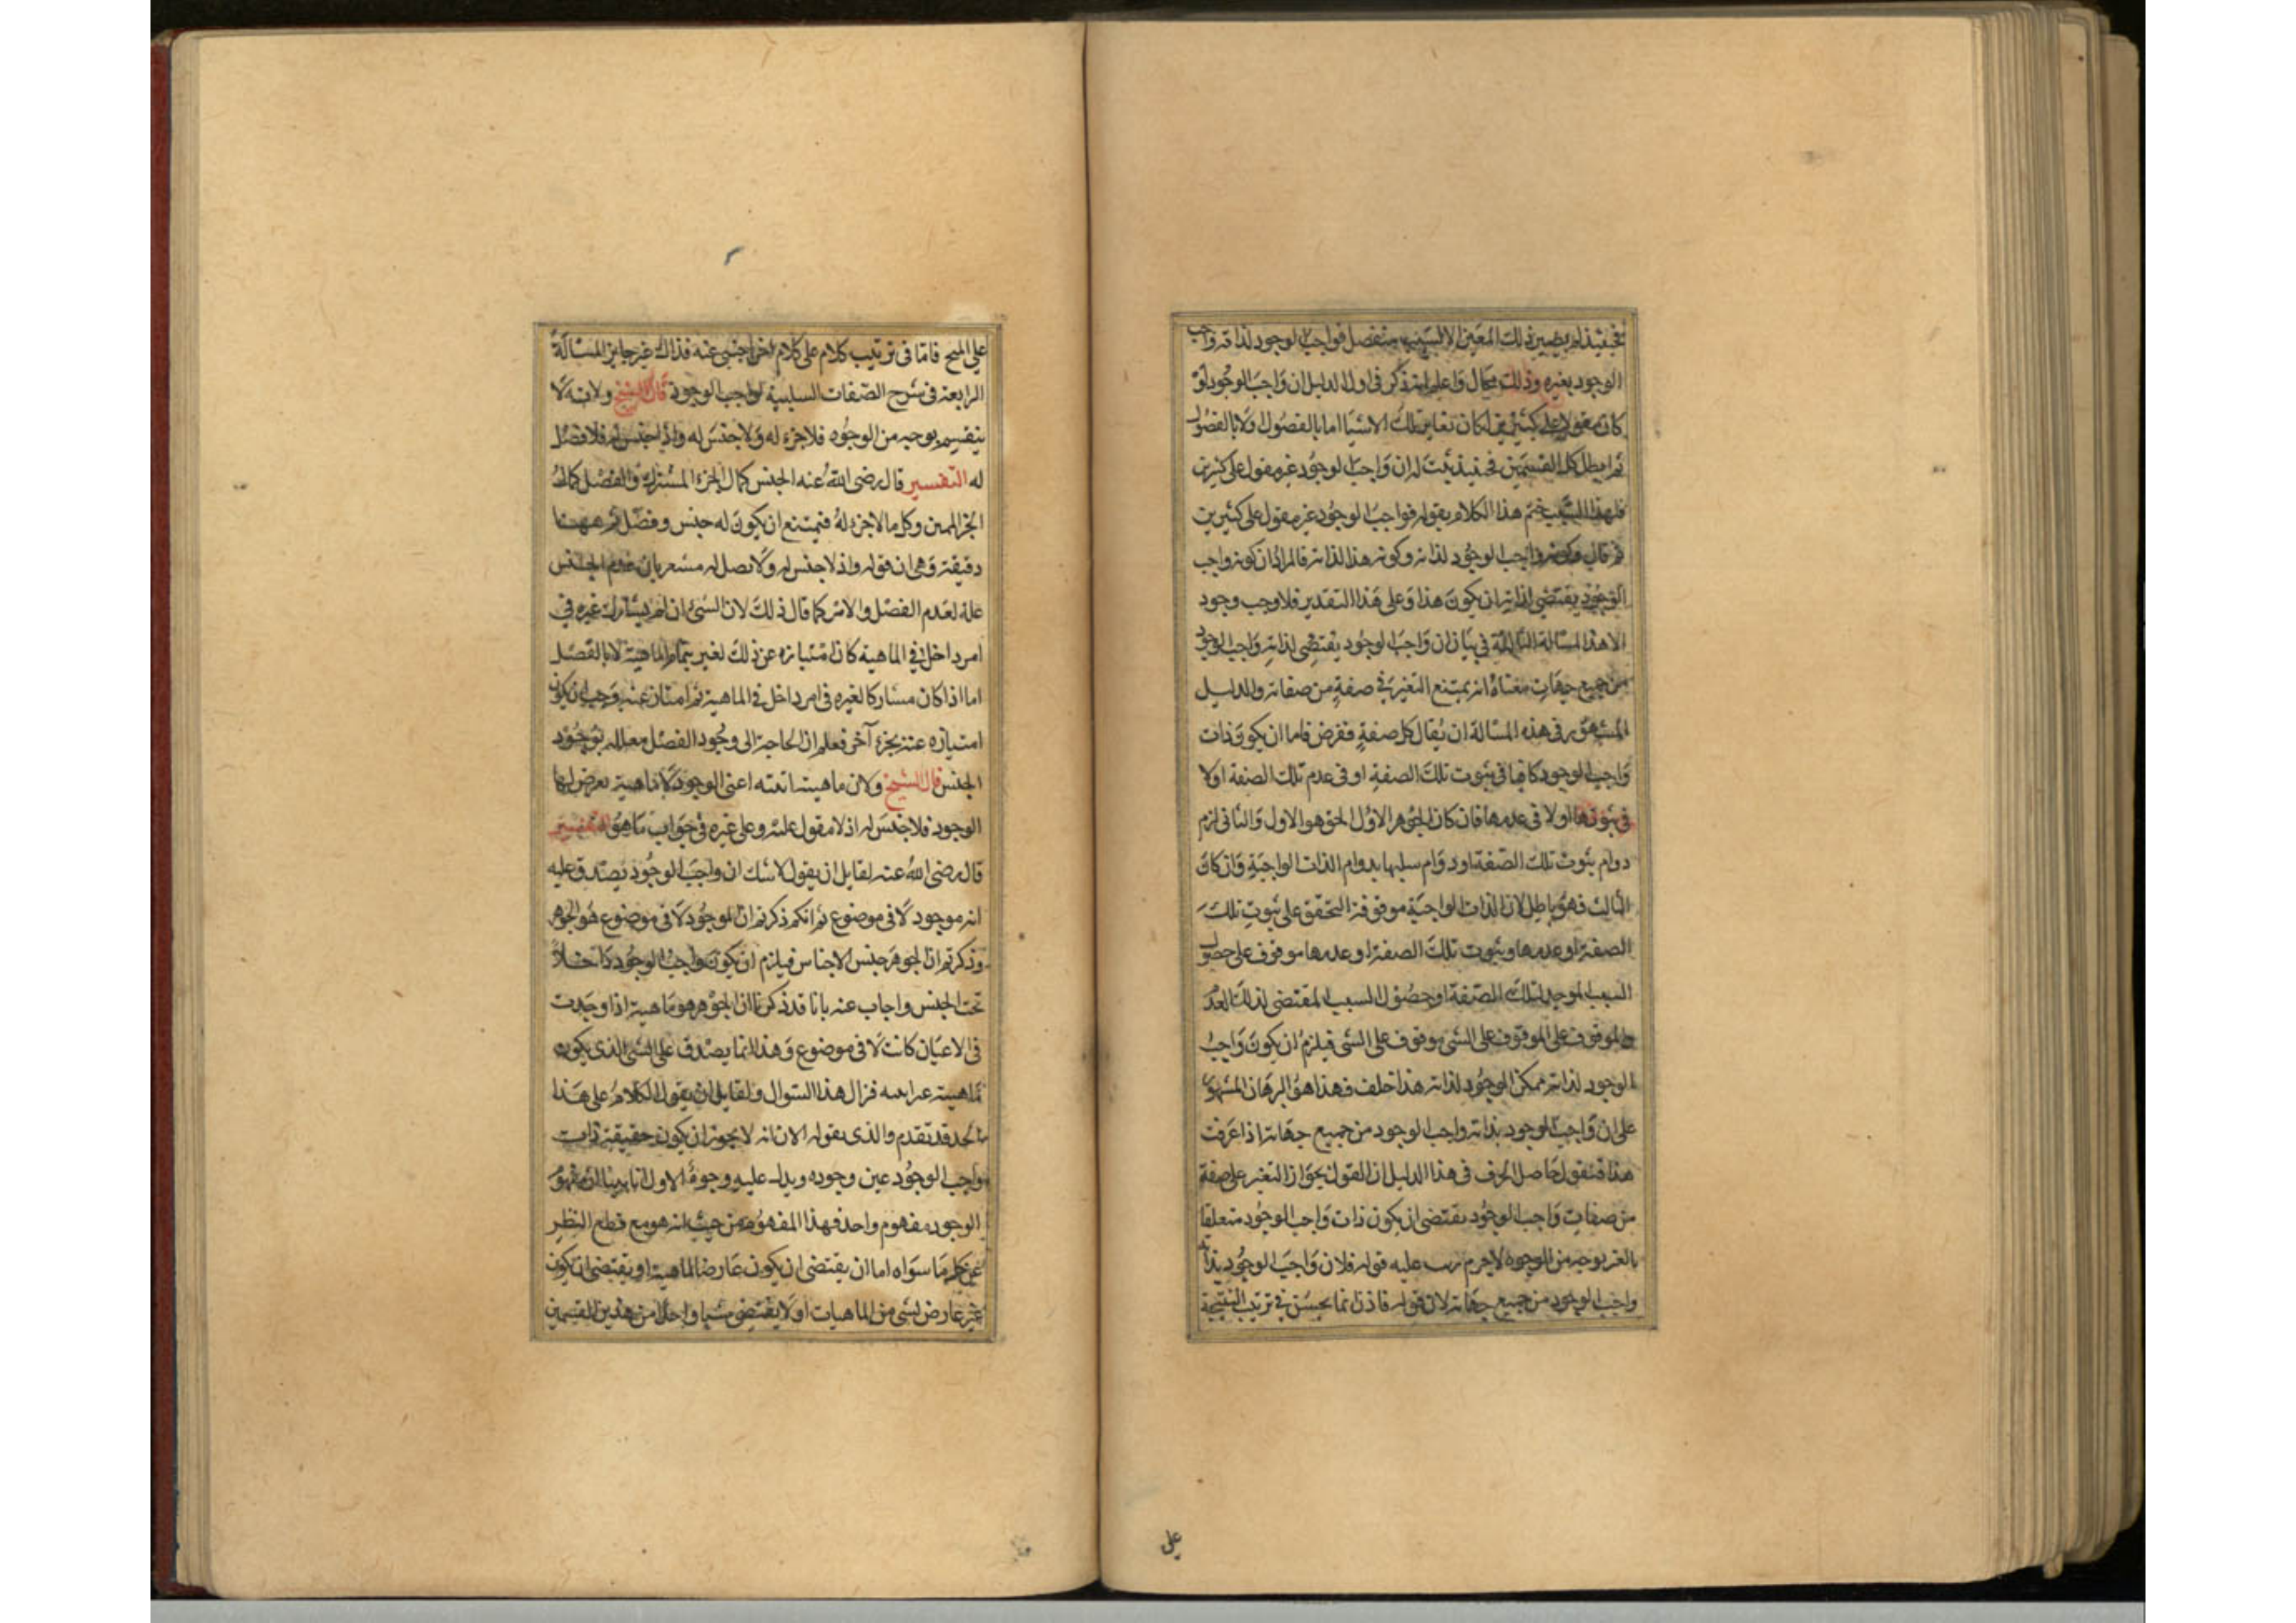 فحينئذ لم يصير ذلك المعين الا لسبب منفصل فواجب الوجود لذاته واجب
الوجود بغيره وذلك محال واعلم انه ذكر في اول الدليل ان واجب الوجود لو
كان مقولا على كثيرين لكان تغاير تلك الاشيا اما بالفصول ولا بالفصول
ثم ابطل كل القسمين فحينئذ ثبت له ان واجب الوجود غير مقول على كثيرين
فلهذا السبب ختم هذا الكلام بقوله فواجب الوجود غير مقول على كثيرين
ثم قال وكونه واجب الوجود لذاته وكونه هذا لذاته فالمراد ان كونه واجب
الوجود يقتضي لذاته ان يكون هذا وعلى هذا التقدير فلا وجب وجود
الا هذا المسالة الثالثة في بيان ان واجب الوجود يقتضي لذاته واجب الوجود
من جميع جهات معناه انه يمتنع التغير في صفة من صفاته والدليل
المشهور في هذه المسالة ان يقال كل صفة تفرض فاما ان يكون ذات
واجب الوجود كافيا في ثبوت تلك الصفة او في عدم تلك الصفة اولا
في ثبوتها ولا في عدمها فان كان الجوهر الاول الحق هو الاول والثاني لزم
دوام ثبوت تلك الصفة او دوام سلبها بدوام الذات الواجبة وان كان
الثالث فهو باطل لان الذات الواجبة موقوفة التحقق على ثبوت تلك
الصفة او عدمها وثبوت تلك الصفة او عدمها موقوف على حصول
السبب الموجد لتلك الصفة او حصول السبب المقتضي لذلك العدم
والموقوف على الموقوف على الشي موقوف على الشي فيلزم ان يكون واجب
الوجود لذاته ممكن الوجود لذاته هذا خلف فهذا هو البرهان المشهور
على ان واجب الوجود بذاته واجب الوجود من جميع جهاته اذا عرفت
هذا فنقول حاصل الحرف في هذا الدليل ان القول بجواز التغير على صفة
من صفات واجب الوجود يقتضي ان يكون ذات واجب الوجود متعلقا
بالغير بوجه من الوجوه لا جرم رتب عليه قوله فلان واجب الوجود بذاته
واجب الوجود من جميع جهاته لان قوله فاذن انما يحسن في ترتيب النتيجة
على
على المنتج فاما في ترتيب كلام على كلام اخر اجنبي عنه فذاك غير جايز المسالة
الرابعة في شرح الصفات السلبية لواجب الوجود قال الشيخ ولانه لا
ينقسم بوجه من الوجوه فلا جزء له ولا جنس له واذ لا جنس له فلا فصل
له التفسير قال رضي الله عنه الجنس كمال الجزء المشترك والفصل كمال
الجزء المميز وكل ما لا جزء له فيمتنع ان يكون له جنس وفصل ثم ههنا
دقيقة وهي ان قوله واذ لا جنس له ولا فصل له مشعر بان عدم الجنس
علة لعدم الفصل والامر كما قال ذلك لان الشي ان لم يشارك غيره في
امر داخل في الماهية كان امتيازه عن ذلك الغير بتمام الماهية لا بالفصل
اما اذا كان مشاركا لغيره في امر داخل في الماهية ثم امتاز عنه وجب ان يكون
امتيازه عنه بجزء آخر فعلم ان الحاجة الى وجود الفصل معللة بوجود
الجنس قال الشيخ ولان ماهيته انيته اعني الوجود لا ماهية يعرض لها
الوجود فلا جنس له اذ لا مقول عليه وعلى غيره في جواب ما هو التفسير
قال رضي الله عنه لقايل ان يقول لا شك ان واجب الوجود يصدق عليه
انه موجود لا في موضوع ثم انكم ذكرتم ان الموجود لا في موضوع هو الجوهر
وذكرتم ان الجوهر جنس الاجناس فيلزم ان يكون واجب الوجود داخلا
تحت الجنس واجاب عنه بانا قد ذكرنا ان الجوهر هو ماهية اذا وجدت
في الاعيان كانت لا في موضوع وهذا انما يصدق على الشي الذي يكون
ماهيته غير انيته فزال هذا السوال ولقايل ان يقول الكلام على هذا
الحد قد تقدم والذي يقوله الان انه لا يجوز ان يكون حقيقة ذات
واجب الوجود عين وجوده ويدل عليه وجوه الاول انا بينا ان مفهوم
الوجود مفهوم واحد فهذا المفهوم من حيث انه هو مع قطع النظر
عن كل ما سواه اما ان يقتضي ان يكون عارضا لماهية او يقتضي ان يكون
غير عارض لشي من الماهيات او لا يقتضي شيا واحدا من هذين القسمين